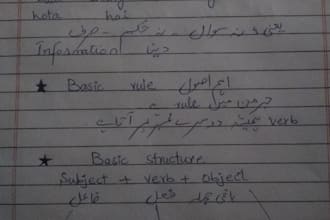 hota hai
یعنی نہ سوال - نہ حکم - صرف
Information دینا
★ Basic rule اہم اصول
جرمن میں rule ہے
verb ہمیشہ دوسرے نمبر پر آتا ہے
★ Basic structure
Subject + verb + object
فاعل فعل باقی جملہ